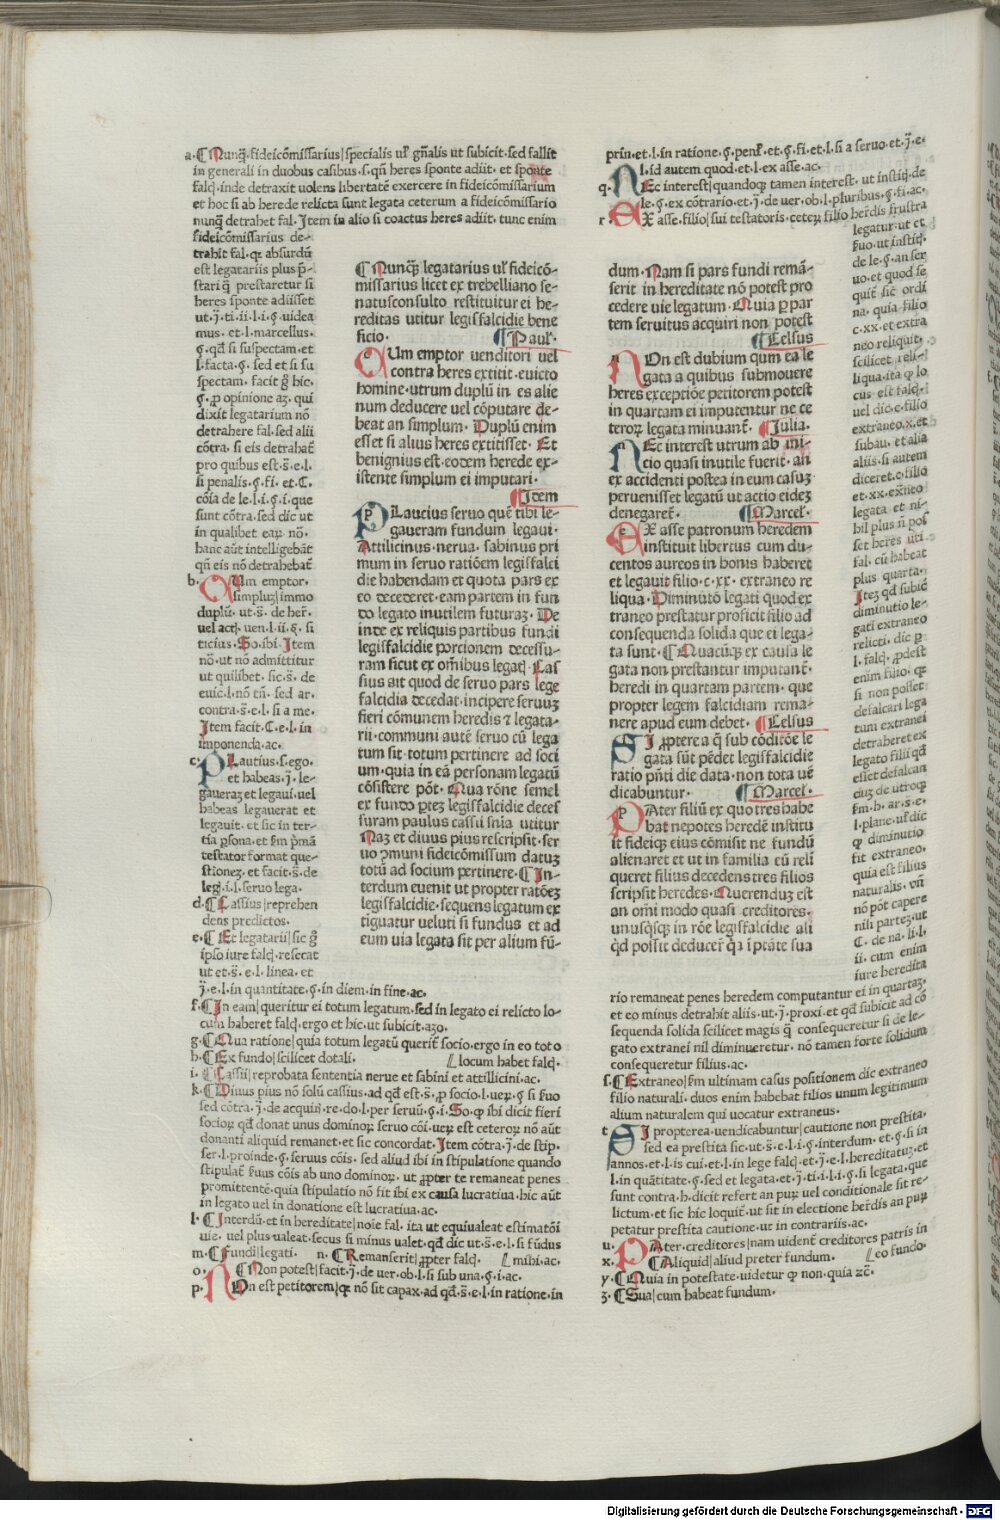 a·¶Nunq̃·fideicõmissarius|specialis ul' gñalis ut subicit·sed fallit
in generali in duobus casibus·s·qñ heres sponte adiit·et sponte
falc̃·inde detraxit uolens libertatẽ exercere in fideicõmissarium
et hoc si ab herede relicta sunt legata ceterum a fideicõmissario
nunq̃ detrahet fal·Item in alio si coactus heres adiit·tunc enim
fideicõmissarius de-
trahit fal·qz absurdũ
est legatariis plus p̃-
stari q̃ prestaretur si
heres sponte adiisset
ut·j̃·ti·ii·l·i·§·uidea
mus·et·l·marcellus·
§·qd̃ si suspectam·et
l·facta·§·sed et si su
spectam·facit g̃ hic·
§·ꝓ opinione az·qui
dixit legatarium nõ
detrahere fal·sed alii
cõtra·si eis detrahat̃
pro quibus est·s̃·e·l·
si penalis·§·fi·et·C·
cõia de le·l·i·§·i·que
sunt cõtra·sed dic ut
in qualibet eaꝝ nõ·
hanc aũt intelligebãt
qñ eis nõ detrahebat̃
b·CUm emptor·
simplum|immo
duplũ·ut·s̃·de her̃·
uel act̃·uen·l·ii·§·si
ticius·So·ibi·Item
nõ·ut nõ admittitur
ut quilibet·sic·s̃·de
euic·l·nõ tñ·sed ar·
contra·s̃·e·l·si a me·
Item facit·C·e·l·in
imponenda·ac·
c·PLautius·s·ego·
et habeas·j̃·le-
gaueraz et legaui·uel
habeas legauerat et
legauit·et sic in ter-
tia ꝑsona·et s̃m p̃mã
testator format que-
stionez·et facit·s̃·de
leg̃·i·l·seruo lega·
d·¶Cassius|reprehen
dens predictos·
e·¶Et legatarii|sic g̃
ipso iure falc̃·resecat
ut et·s̃·e·l·linea·et
j̃·e·l·in quantitate·§·in diem·in fine·ac·
f·¶In eam|queritur ei totum legatum·sed in legato ei relicto lo-
cum haberet falc̃·ergo et hic·ut subicit·azo·
g·¶Qua ratione|quia totum legatũ querit̃ socio·ergo in eo toto
h·¶Ex fundo|scilicet dotali· [locum habet falc̃·
i·¶Cassii|reprobata sententia nerue et sabini et attillicini·ac·
k·¶Diuus pius nõ solũ cassius·ad qd̃ est·s̃·ꝓ socio·l·ueꝝ·§ si s̃uo
sed cõtra·j̃·de acquir̃·re·do·l·per seruũ·§·i·So·ꝙ ibi dicit fieri
socioꝝ qd̃ donat unus dominoꝝ seruo cõi·ueꝝ est ceteroꝝ nõ aũt
donanti aliquid remanet·et sic concordat·Item cõtra·j̃·de stip·
ser·l·proinde·§·seruus cõis·sed aliud ibi in stipulatione quando
stipulat̃ s̃uus cõis ab uno dominoꝝ·ut ꝓpter te remaneat penes
promittentẽ·quia stipulatio nõ fit ibi ex causa lucratiua·hic aũt
in legato uel in donatione est lucratiua·ac·
l·¶Interdũ·et in hereditate|noĩe fal·ita ut equiualeat estimatõi
uie·uel plus ualeat·secus si minus ualet·qd̃ dic ut·s̃·e·l·si fũdus
m·¶fundi|legati· n·¶Remanserit|ꝓpter falc̃· [mibi·ac·
o·¶Non potest|facit·j̃·de uer·ob·l·si sub una·§·i·ac·
p·NOn est petitorem|qz nõ sit capax·ad qd̃·s̃·e·l·in ratione·in
¶Nuncq̃ legatarius ul' fideicõ-
missarius licet ex trebelliano se-
natusconsulto restituitur ei he-
reditas utitur legis falcidie bene
ficio· ¶Paul'·
CUm emptor uenditori uel
contra heres extitit·euicto
homine·utrum duplũ in es alie
num deducere uel cõputare de-
beat an simplum·Duplũ enim
esset si alius heres extitisset·Et
benignius est·eodem herede ex-
istente simplum ei imputari·
¶Item
PLaucius seruo quẽ tibi le-
gaueram fundum legaui·
Attilicinus·nerua·sabinus pri
mum in seruo ratiõem legis falci
die habendam et quota pars ex
eo decederet·eam partem in fun
do legato inutilem futuraz·De
inde ex reliquis partibus fundi
legis falcidie porcionem decessu-
ram sicut ex om̃ibus legat̃·Cas
sius ait quod de seruo pars lege
falcidia decedat·incipere seruuz
fieri cõmunem heredis ⁊ legata-
rii·communi autẽ seruo cũ lega
tum sit·totum pertinere ad soci
um·quia in eã personam legatũ
cõsistere põt·Qua rõne semel
ex fundo ptez legis falcidie deces
suram paulus cassii snĩa utitur
Naz et diuus pius rescripsit·ser
uo ꝯmuni fideicõmissum datuz
totũ ad socium pertinere·¶In-
terdum euenit ut propter ratõez
legis falcidie·sequens legatum ex
tiguatur ueluti si fundus et ad
eum uia legata sit per alium fũ-
dum·Nam si pars fundi remã-
serit in hereditate nõ potest pro
cedere uie legatum·Quia ꝑ par
tem seruitus acquiri non potest
¶Celsus
NOn est dubium quin ea le
gata a quibus submouere
heres exceptiõe petitorem potest
in quartam ei imputentur ne ce
teroꝝ legata minuant̃·¶Julia·
NEc interest utrum ab ini-
cio quasi inutile fuerit·an
ex accidenti postea in eum casuz
peruenisset legatũ ut actio eidez
denegaret̃· ¶Marcel'·
EX asse patronum heredem
instituit libertus cum du-
centos aureos in bonis haberet
et legauit filio·c·xx·extraneo re
liqua·Diminutõ legati quod ex
traneo prestatur proficit filio ad
consequenda solida que ei lega-
ta sunt·¶Quacũqz ex causa le
gata non prestantur imputant̃·
heredi in quartam partem·que
propter legem falcidiam rema-
nere apud eum debet·¶Celsus
SI ꝓpterea q̃ sub cõditõe le
gata sũt pẽdet legis falcidie
ratio p̃nti die data·non tota uẽ
dicabuntur· ¶Marcel'·
PAter filiũ ex quo tres habe
bat nepotes heredẽ institu
it fideiqz eius cõmisit ne fundũ
alienaret et ut in familia eũ reli
queret filius decedens tres filios
scripsit heredes·Querenduz est
an om̃i modo quasi creditores·
unusq̃sqz in rõe legis falcidie ali
q̃d possit deducer̃ q̃a ip̃tate sua
prin·et·l·in ratione·§·penl̃·et·§·fi·et·l·si a seruo·et·j̃·e·
l·id autem quod·et·l·ex asse·ac·
q·NEc interest|quandoqz tamen interest·ut instit̃·de
le·§·ex cõtrario·et·j̃·de uer·ob·l·pluribus·§·fi·ac·
r·EX asse·filio|sui testatoris·ceteꝝ filio her̃dis frustra
legatur·ut et
s̃uo·ut instit̃·
de le·§·an ser
uo·et quod se
quit̃ sic ordi
na·quia filio
c·xx·et extra
neo reliquit·
scilicet reli-
liqua·ita ꝙ lo
cus est falc̃·l·
uel dic·c·filio
extraneo·x·et
subau·et alia
aliis·si autem
diceret·c·filio
et·xx·exñeo
legata·et ni-
hil plus ñ pos̃
set heres uti·
fal·cũ habeat
plus quarta·
Itez qd̃ subic̃
diminutio le-
gati extraneo
relicti·dic ꝑ
l·falc̃·ꝓdest
enim filio·qz
si non posset
defalcari lega
tum extranei
detraheret ex
legato filii qd̃
esset defalcan
duz de utroqz
s̃m·h·ar·s·e·
l·plane·ul' dic
ꝙ diminutio
fit extraneo·
quia est filius
naturalis·uñ
nõ põt capere
nisi partez·ut
C·de na·li·l·
ii·cum enim
iure heredita
rio remaneat penes heredem computantur ei in quartaz·
et eo minus detrahit aliis·ut·j̃·proxi·et qd̃ subicit ad cõ
sequenda solida scilicet magis q̃ consequeretur si de le-
gato extranei nil diminueretur·nõ tamen forte solidum
consequeretur filius·ac·
s·¶Extraneo|s̃m ultimam casus positionem dic extraneo
filio naturali·duos enim habebat filios unum legitimum
alium naturalem qui uocatur extraneus·
t·SI propterea·uendicabuntur|cautione non prestita·
sed ea prestita sic·ut·s̃·e·l·i·§·interdum·et·§·si in
annos·et·l·is cui·et·l·in lege falc̃·et·j̃·e·l·hereditatuz·et
l·in quãtitate·§·sed et legata·et·j̃·ti·l·i·§·si legata·que
sunt contra·h·dicit refert an puꝝ uel conditionale sit re-
lictum·et sic hic loquit̃·ut sit in electione her̃dis an puꝝ
petatur prestita cautione·ut in contrariis·ac·
u·PAter·creditores|nam uident̃ creditores patris in
x·¶Aliquid|aliud preter fundum· [eo fundo·
y·¶Quia in potestate·uidetur ꝙ non·quia zc̃·
z·¶Sua|cum habeat fundum·
Digitalisierung gefördert durch die Deutsche Forschungsgemeinschaft - DFG